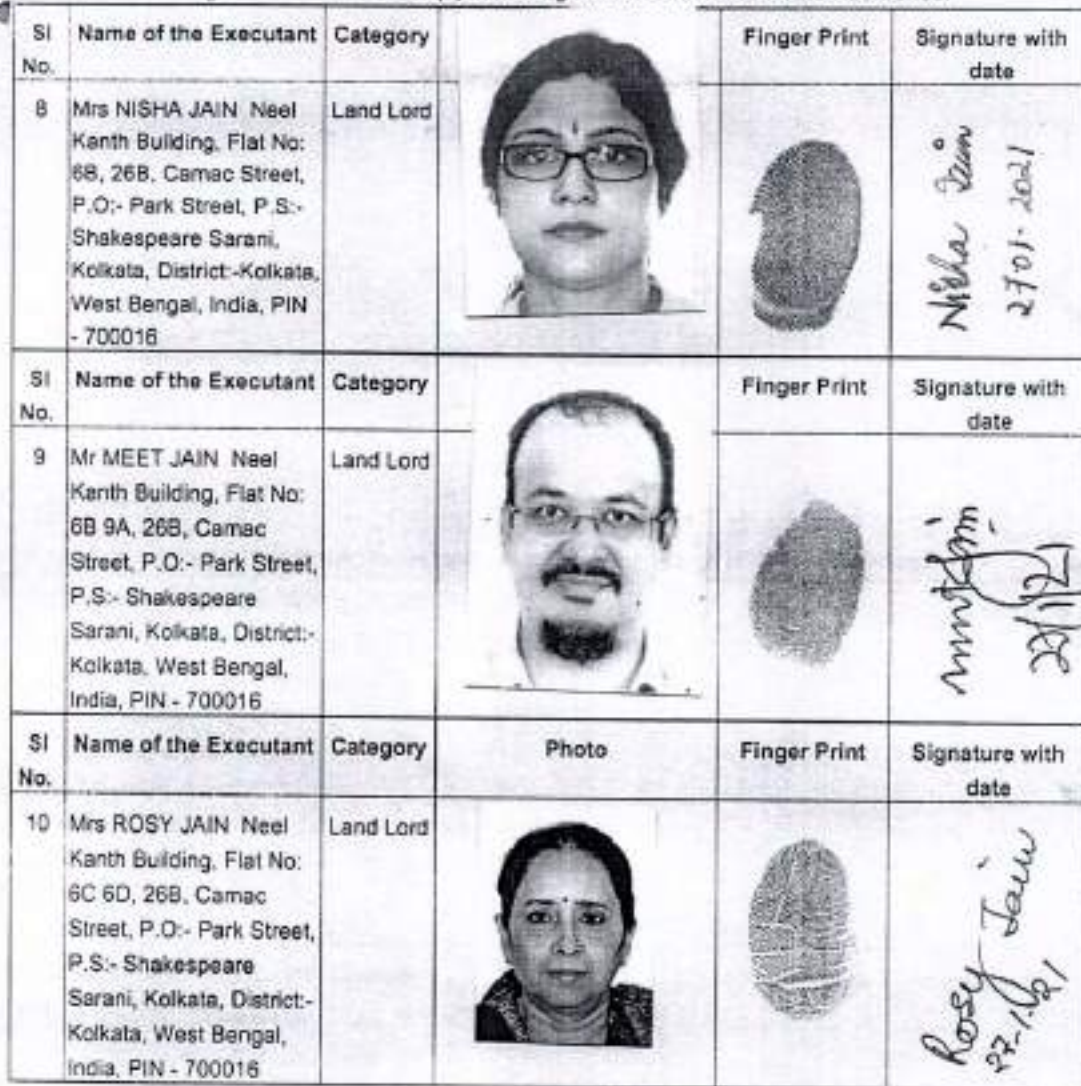 SI No. Name of the Executant Category Finger Print Signature with date
8 Mrs NISHA JAIN Neel Land Lord
Kanth Building, Flat No:
6B, 26B, Camac Street,
P.O:- Park Street, P.S:-
Shakespeare Sarani,
Kolkata, District:-Kolkata,
West Bengal, India, PIN
- 700016
Nisha Jain
27·01·2021
SI No. Name of the Executant Category Finger Print Signature with date
9 Mr MEET JAIN Neel Land Lord
Kanth Building, Flat No:
6B 9A, 26B, Camac
Street, P.O:- Park Street,
P.S:- Shakespeare
Sarani, Kolkata, District:-
Kolkata, West Bengal,
India, PIN - 700016
SI No. Name of the Executant Category Photo Finger Print Signature with date
10 Mrs ROSY JAIN Neel Land Lord
Kanth Building, Flat No:
6C 6D, 26B, Camac
Street, P.O:- Park Street,
P.S:- Shakespeare
Sarani, Kolkata, District:-
Kolkata, West Bengal,
India, PIN - 700016
Rosy Jain
27-1-21